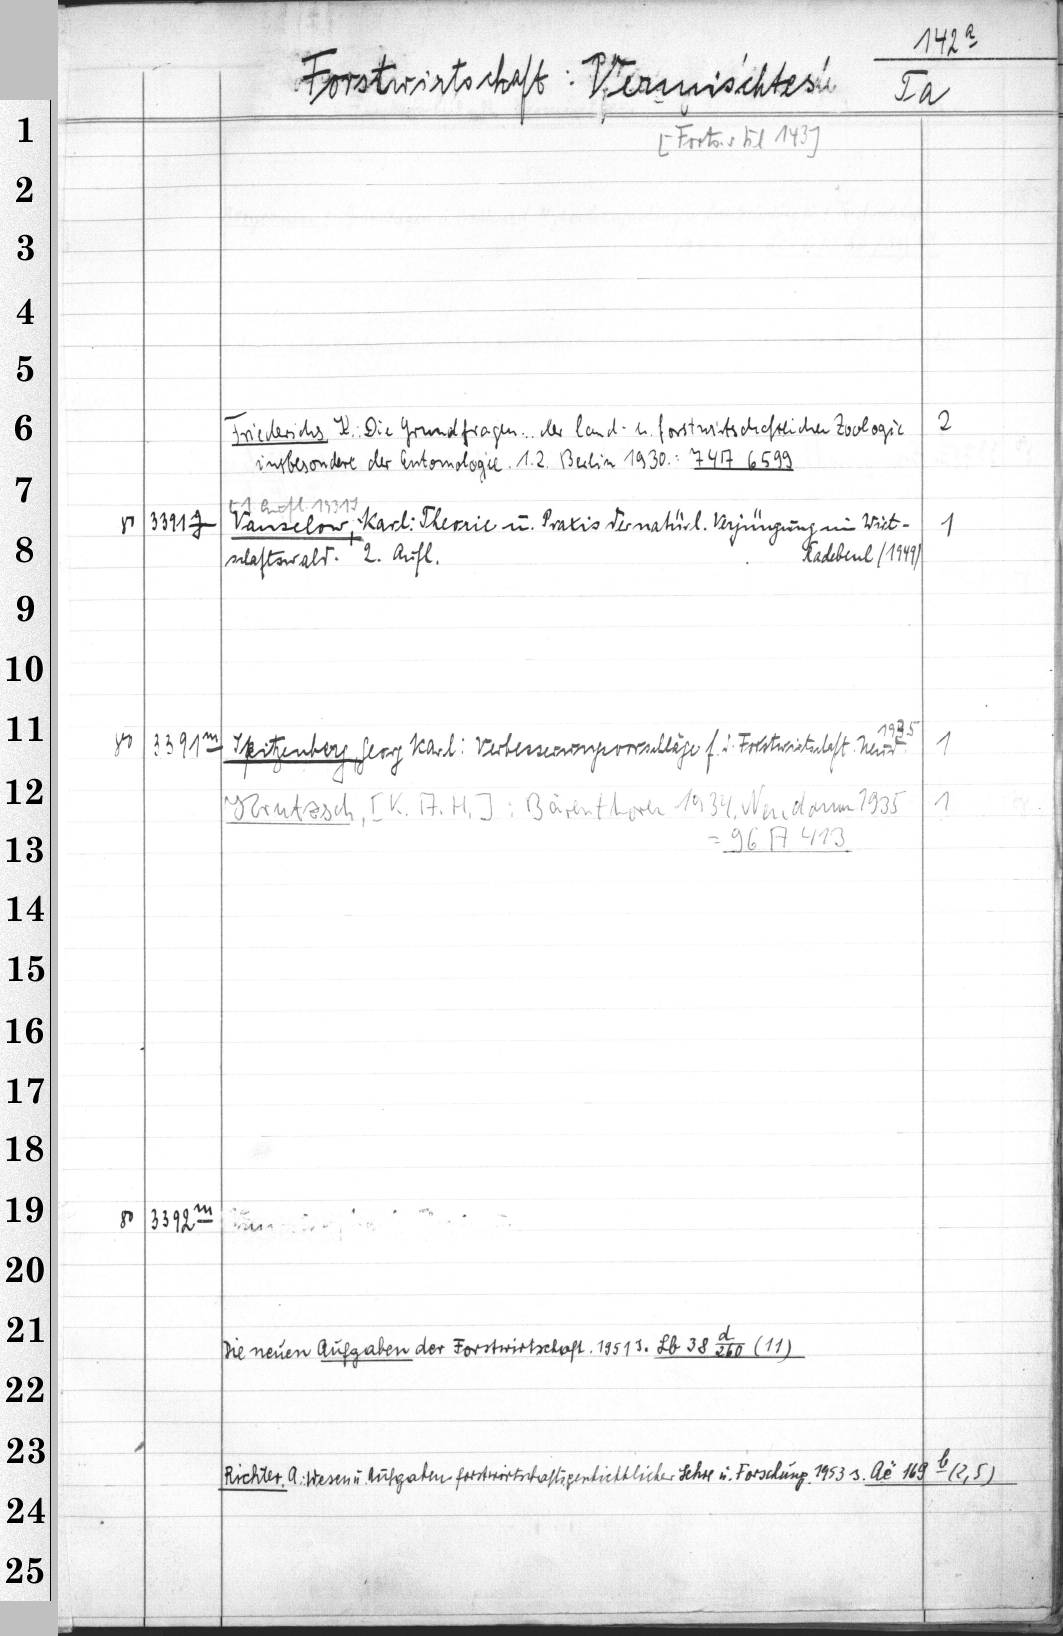 142a
Forstwirtschaft: Vermischtes
Ta
1
[Forts. s. Bl 143]
2
3
4
5
6
Friederichs K.: Die Grundfragen.. der land- u. forstwirtschaftlichen Zoologie 2
insbesondere der Entomologie. 1.2. Berlin 1930.: 74 A 6599
7
[1 Aufl. 1931]
8° 3391g Vanselow, Karl: Theorie u. Praxis der natürl. Verjüngung im Wirt- 1
8
schaftswald. 2. Aufl. Radebeul (1949)
9
10
11
1935
8° 3391m Spitzenberg, Georg Karl: Verbesserungsvorschläge f. d. Forstwirtschaft. Neud. 1
12
Krutzsch, [K. A. H.]: Bärenthoren 1934. Neudamm 1935 1
13
= 96 A 413
14
15
16
17
18
19
8° 3392m
20
21
Die neuen Aufgaben der Forstwirtschaft. 1951 s. Lb 38 d/260 (11)
22
23
Richter, A.: Wesen u. Aufgaben forstwirtschaftsgeschichtlicher Lehre u. Forschung. 1953 s. Aë 169 b (2,5)
24
25